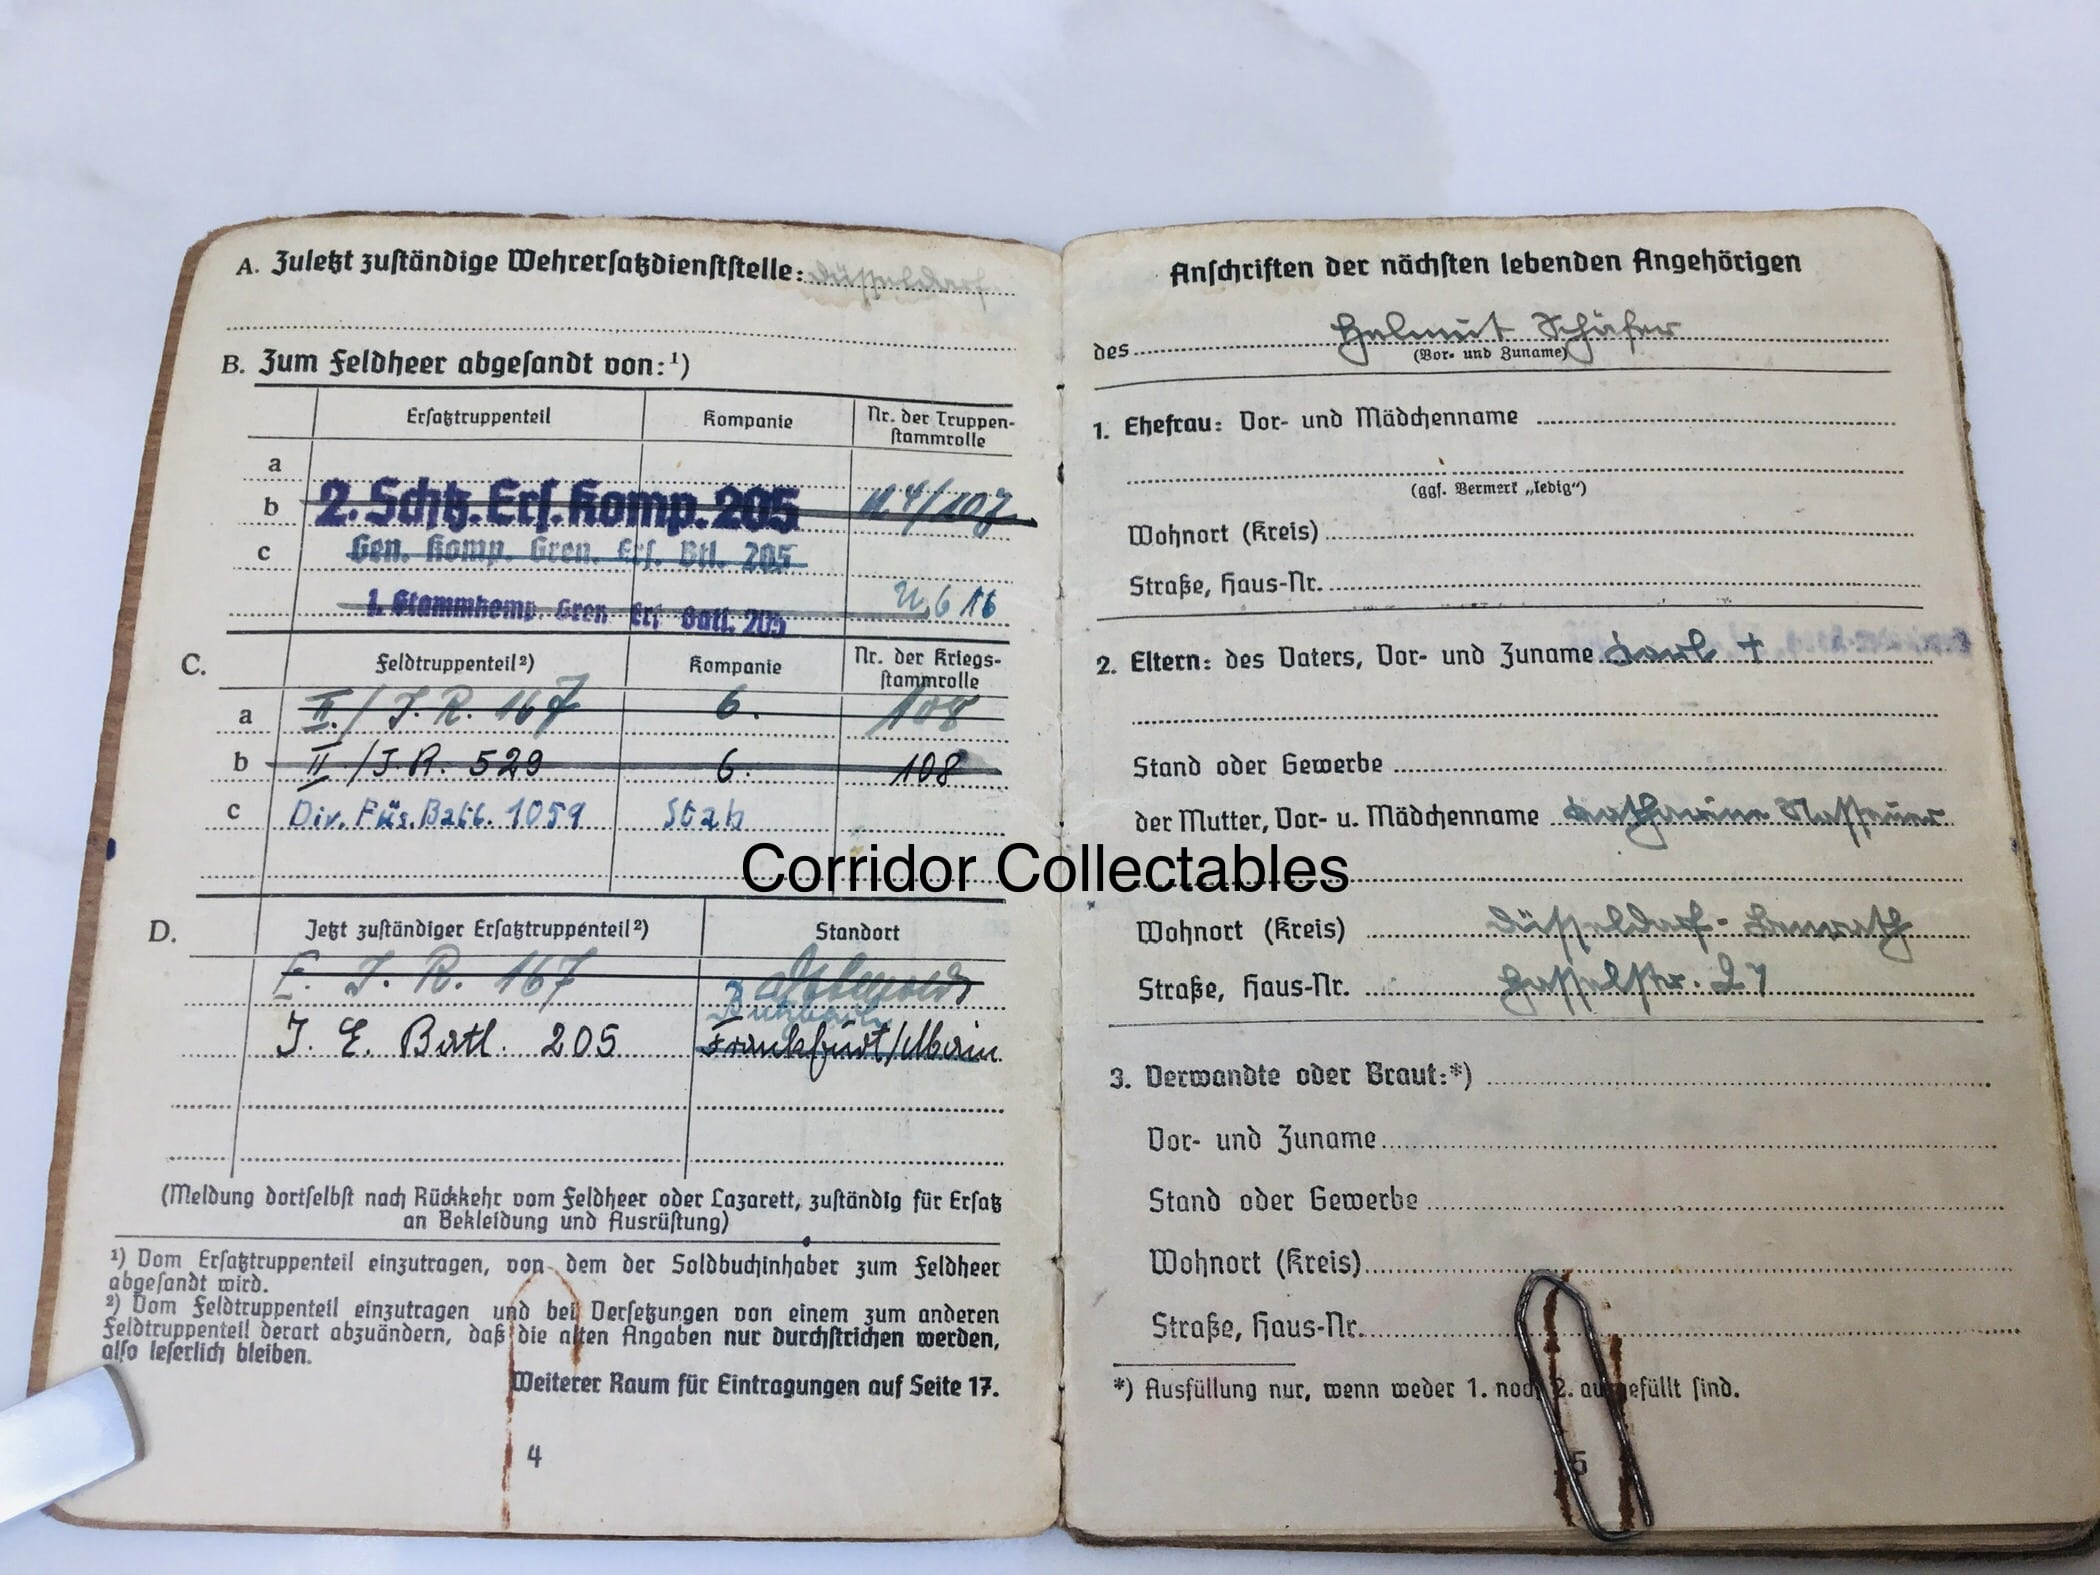 A. Zuletzt zuständige Wehrersatzdienststelle: Düsseldorf
B. Zum Feldheer abgesandt von: ¹)
Ersatztruppenteil Kompanie Nr. der Truppen-
stammrolle
a
b 2. Schtz. Ers. Komp. 205
c Gen. Komp. Gren. Ers. Btl. 205
1. Stammkomp. Gren Ers Batl. 205
C. Feldtruppenteil ²) Kompanie Nr. der Kriegs-
stammrolle
a II. / J. R. 167 6. 108
b II / J. R. 529 6. 108
c Div. Füs. Batl. 1059 Stab
D. Jetzt zuständiger Ersatztruppenteil ²) Standort
E. J. R. 167
Butzbach
J. E. Batl. 205 Frankfurt/Main
(Meldung dortselbst nach Rückkehr vom Feldheer oder Lazarett, zuständig für Ersatz
an Bekleidung und Ausrüstung)
¹) Vom Ersatztruppenteil einzutragen, von dem der Soldbuchinhaber zum Feldheer
abgesandt wird.
²) Vom Feldtruppenteil einzutragen und bei Versetzungen von einem zum anderen
Feldtruppenteil derart abzuändern, daß die alten Angaben nur durchstrichen werden,
also leserlich bleiben.
Weiterer Raum für Eintragungen auf Seite 17.
4
Anschriften der nächsten lebenden Angehörigen
des Helmut Schäfer
(Vor- und Zuname)
1. Ehefrau: Vor- und Mädchenname
(ggf. Vermerk „ledig“)
Wohnort (Kreis)
Straße, Haus-Nr.
2. Eltern: des Vaters, Vor- und Zuname Karl †
Stand oder Gewerbe
der Mutter, Vor- u. Mädchenname Katharine
Wohnort (Kreis) Düsseldorf-Benrath
Straße, Haus-Nr. Hasselstr. 27
3. Verwandte oder Braut: *)
Vor- und Zuname
Stand oder Gewerbe
Wohnort (Kreis)
Straße, Haus-Nr.
*) Ausfüllung nur, wenn weder 1. noch 2. ausgefüllt sind.
5
Corridor Collectables